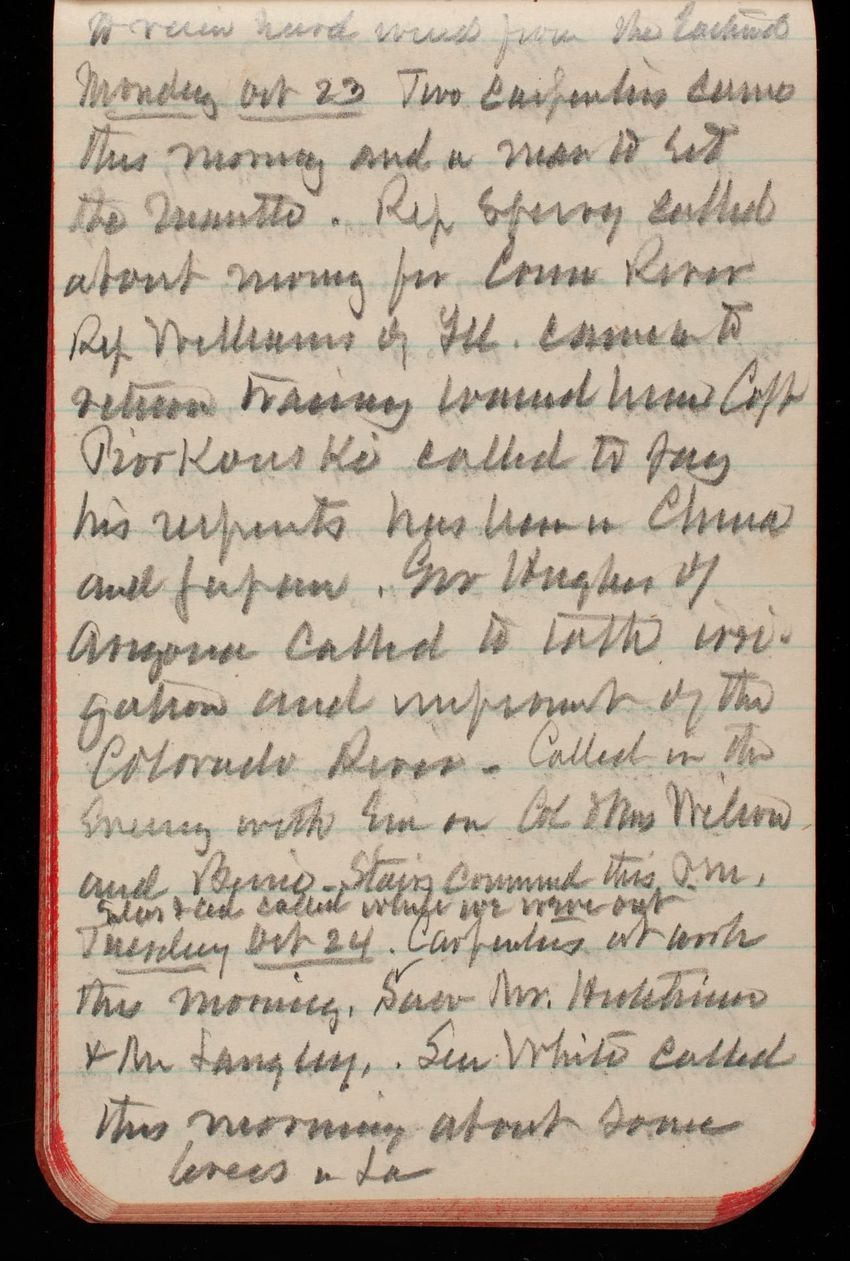 to rain hard wind from the Eastward
Monday Oct 23 Two carpenters came
this morning and a man to set
the mantle. Rep Sperry called
about money for Conn River
Rep Williams of Ill. came in to
return training around here Capt
Piorkouski called to pay
his respects has been in China
and Japan. Gov Hughes of
Arizona called to talk irri-
gation and improvmt of the
Colorado River - Called in the
Evening with Em on Col & Mrs Wilson
and - Stairs commend this P.M.
called while we were out
Tuesday Oct 24. Carpenters at work
this morning. Saw Mr. Hutchinson
& Mr Langley,. Sen White called
this morning about some
levees in La